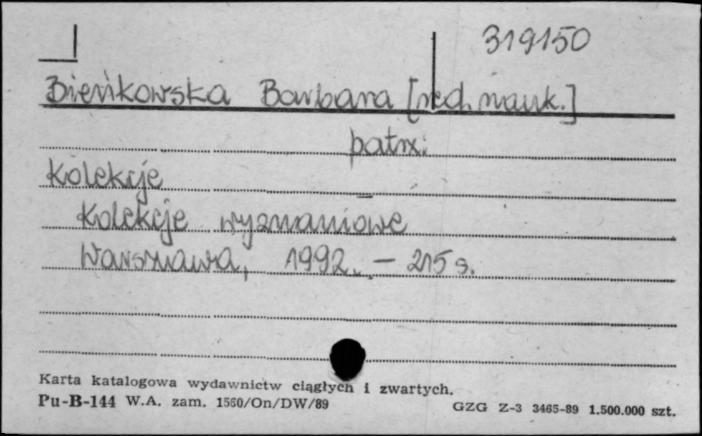 319150
Bieńkowska Barbara [red. nauk.]
patrz:
Kolekcje
Kolekcje wyznaniowe
Warszawa, 1992. – 215 s.
Karta katalogowa wydawnictw ciągłych i zwartych.
Pu-B-144 W.A. zam. 1560/On/DW/89 GZG Z-3 3465-89 1.500.000 szt.